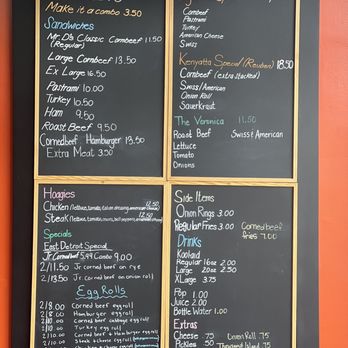 Make it a combo 3.50
Sandwiches
Mr D's Classic Cornbeef 11.50
(Regular)
Large Cornbeef 13.50
Ex Large 16.50
Pastrami 10.00
Turkey 10.50
Ham 9.50
Roast Beef 9.50
Cornedbeef Hamburger 13.50
Extra Meat 3.50
Cornbeef
Pastrami
Turkey
American Cheese
Swiss
Kenyatta Special (Reuben) 18.50
Cornbeef (extra stacked)
Swiss/American
Onion Roll
Sauerkraut
The Veronica 11.50
Roast Beef Swiss & American
Lettuce
Tomato
Onions
Hoagies
Chicken (lettuce, tomato, Italian dressing, american cheese) 12.50
Steak (lettuce, tomato, mayo, bell peppers, american cheese) 12.50
Specials
East Detroit Special
Jr. Corned beef 5.99 Combo 9.00
2/11.50 Jr corned beef on rye
2/13.50 Jr corned beef on onion roll
Egg Rolls
2/8.00 Corned beef egg roll
2/8.00 Hamburger egg roll
2/10.00 Corned beef cabbage egg roll
2/10.00 Turkey egg roll
2/10.00 Corned beef & hamburger egg rolls
Steak & cheese egg rolls
Side Items
Onion Rings 3.00
Regular Fries 3.00 Corned beef
fries 7.00
Drinks
Koolaid
Regular 16oz 2.00
Large 20oz 2.50
XLarge 3.75
Pop 1.00
Juice 2.00
Bottle Water 1.00
Extras
Cheese .75 Onion Roll .75
Pickles .50 Thousand Island .75